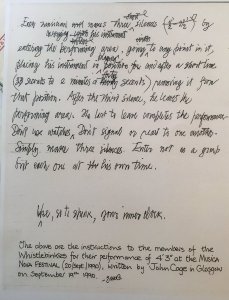 Each musician will make three silences by
entering the performing area, going to any point in it,
placing his instrument in position for and after a short time
(33 seconds to 2 minutes &                seconds) removing it from
that position. After the third silence, he leaves the
performing area. The last to leave completes the performance.
Don't use watches. Don't signal or react to one another.
Simply make three silences. Enter not as a group
but each one at his own time.
Use, so to speak, your inner clock.
The above are the instructions to the members of the
Whistlebinkies for their performance of 4'33" at the Musica
Nova Festival (20/Sept/1990), written by John Cage in Glasgow
on September 19th 1990.